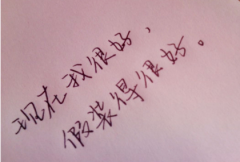 现在我很好，
假装得很好。